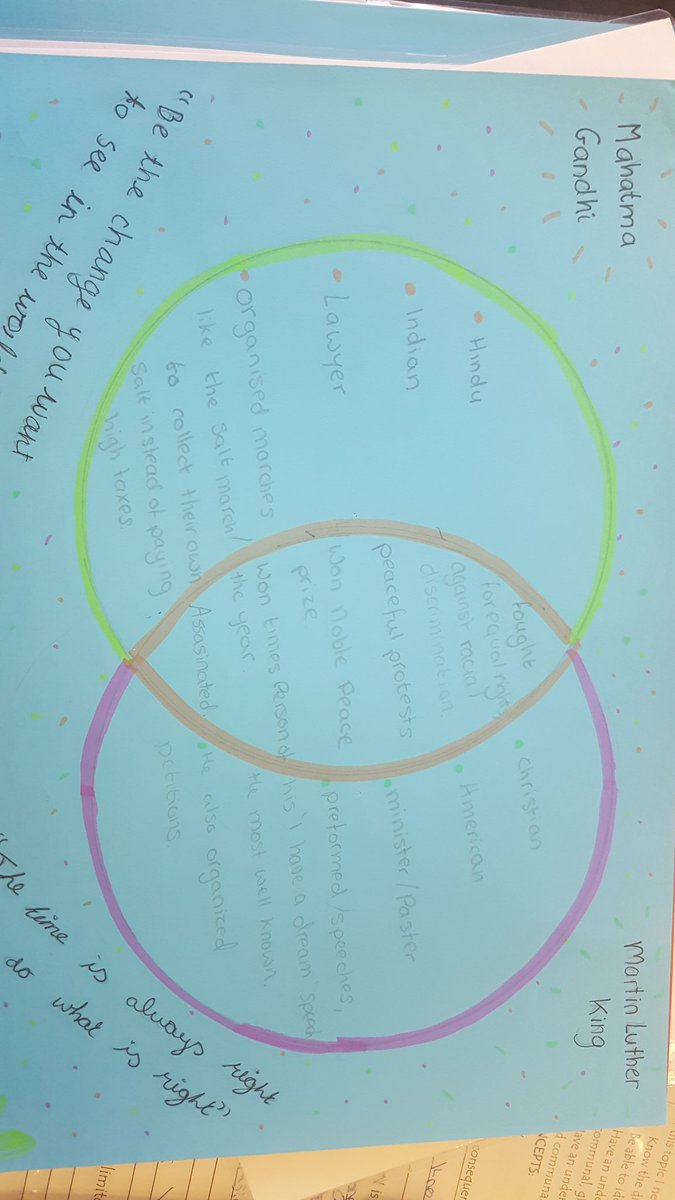 Mahatma
Gandhi
Martin Luther
King
• Hindu
• Indian
• Lawyer
• organised marches
like the salt march/
to collect their own
salt instead of paying
high taxes.
fought
for equal rights
against racial
discrimination.
peaceful protests
won noble peace
prize
won times person of
the year.
Assasinated.
• christian
• American
• minister/Paster
• preformed/speeches,
his 'I have a dream' speech
the most well known.
• He also organized
petitions.
"Be the change you want
to see in the world
"The time is always right
do what is right"
his topic I
Know the d
be able to
Have an und
communal, g
ave an under
d commun
NCEPTS:
consequen
limit